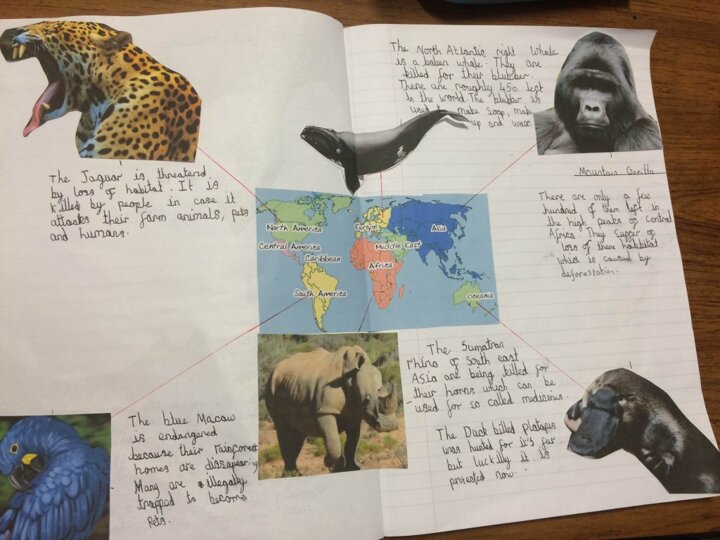 The North Atlantic right whale
is a baleen whale. They are
killed for their blubber.
There are roughly 450 left
in the world. The blubber is
used make soap, make
up and wax
Mountain Gorilla
The Jaguar is threatend
by loss of habitat. It is
killed by people in case it
attacks their farm animals, pets
and humans.
There are only a few
hundred of them left in
the high peaks of central
Africa. They suffer of
loss of there habbitat
is caused by
deforestation.
North America
Europe
Asia
Central America
Middle East
Caribbean
Africa
South America
Oceania
The Sumatran
rhino of South east
Asia are being killed for
their horns which can be
used for so called medicines.
The blue Macaw
is endangered
because their rainforest
homes are
Many are illegally
trapped to become
pets.
The Duck billed platapus
was hunted for it's fur
but luckily it is
now.